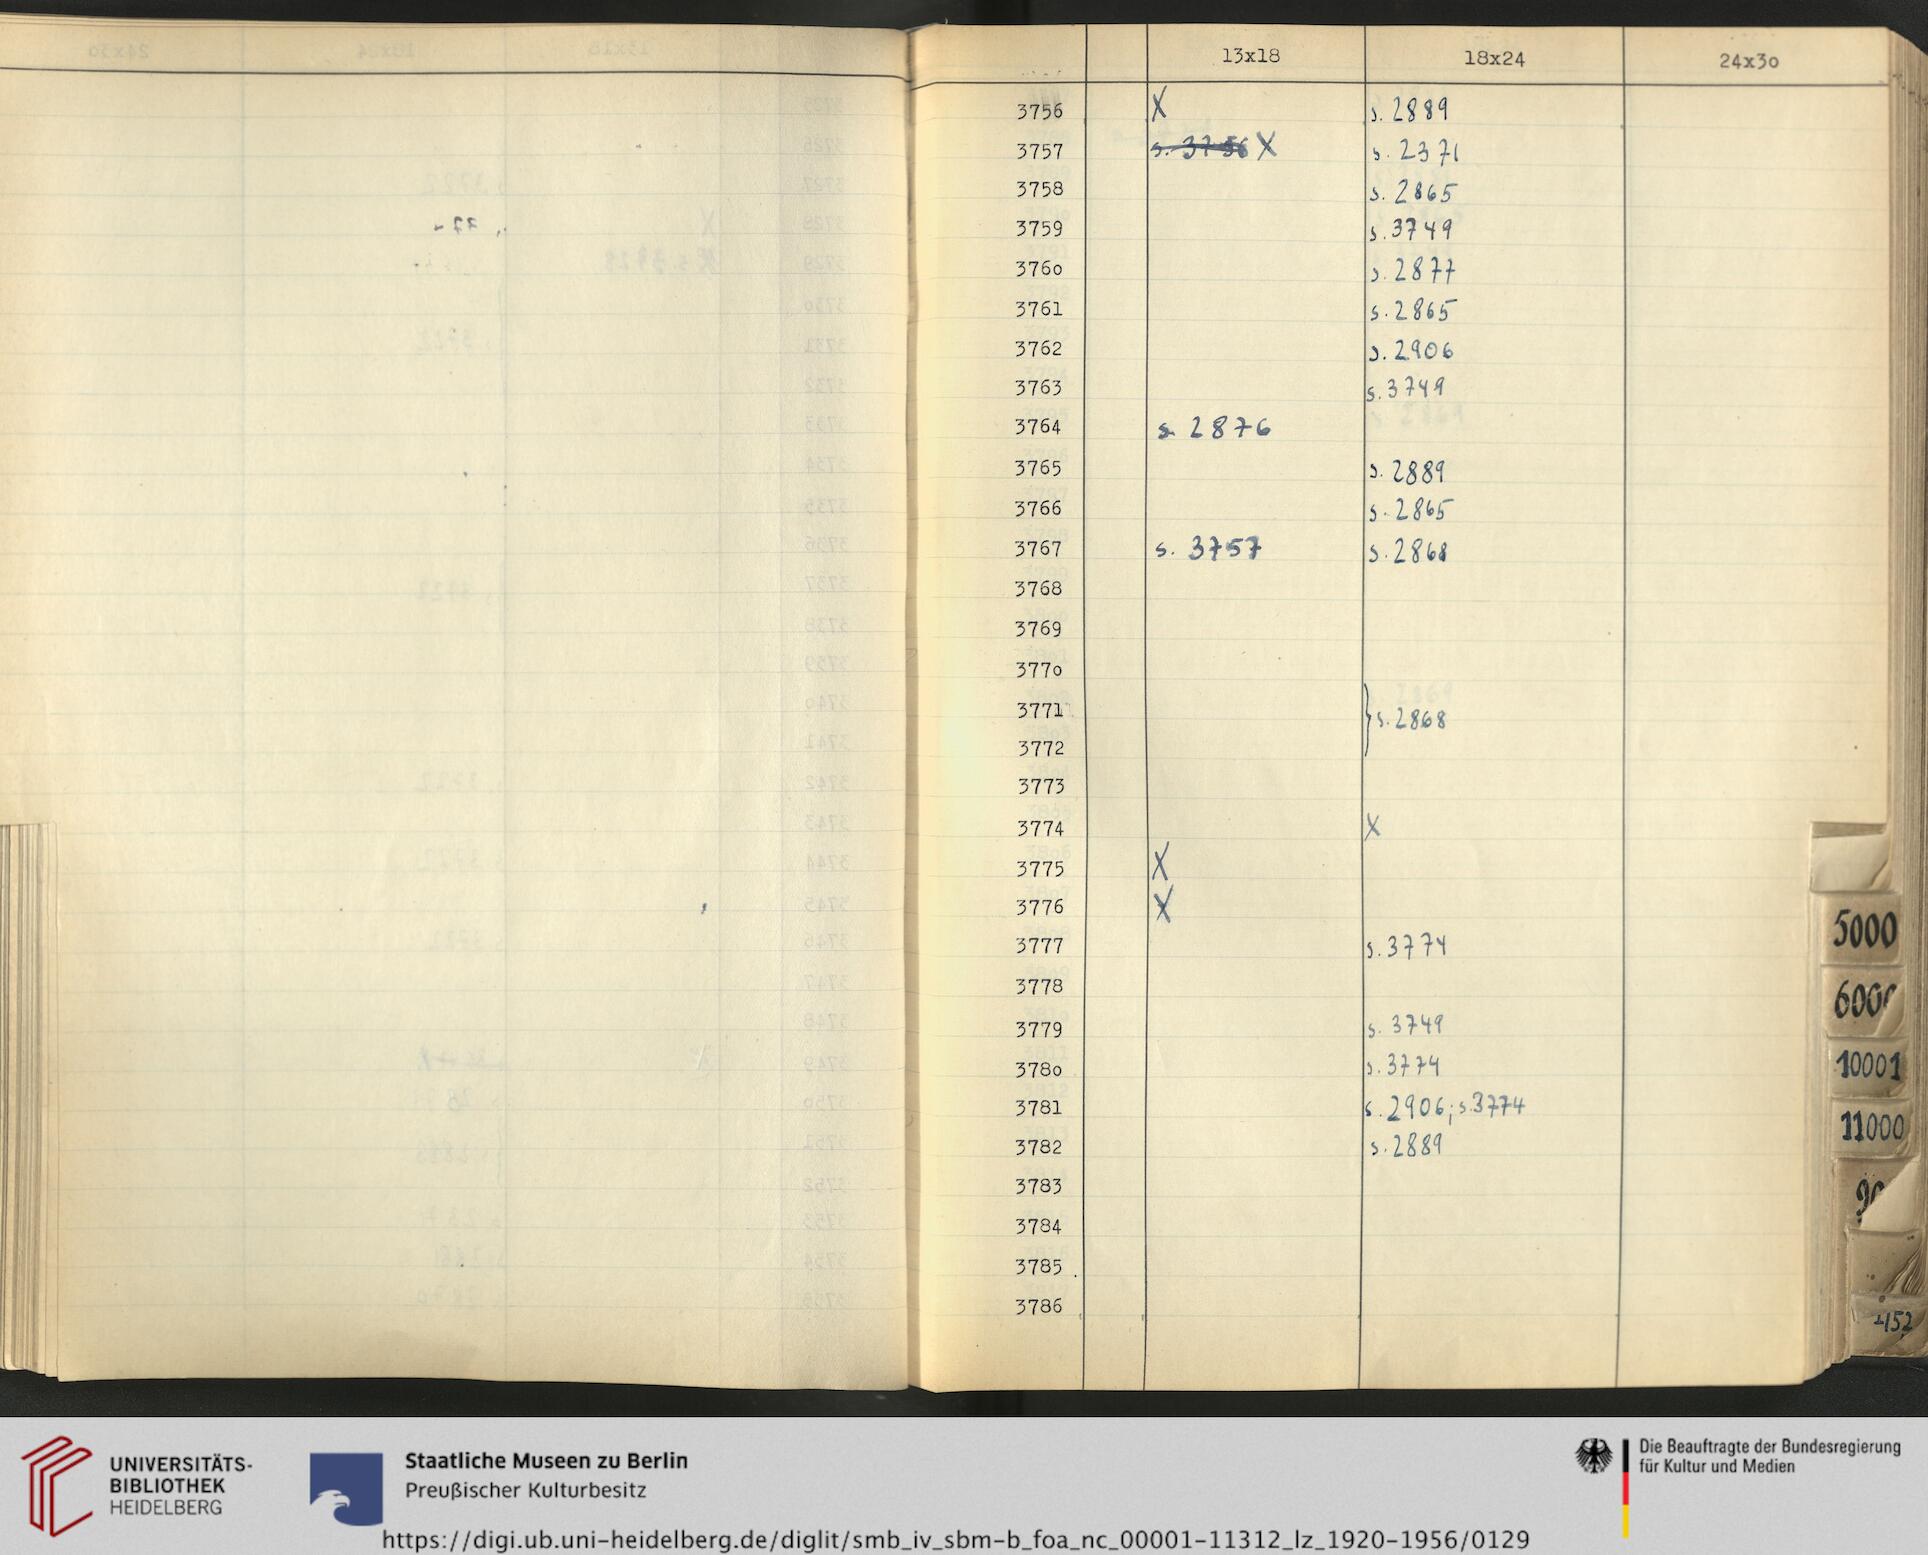 13x18 18x24 24x3o
3756 X s. 2889
3757 s. 3756 X s. 2371
3758 s. 2865
3759 s. 3749
376o s. 2877
3761 s. 2865
3762 s. 2906
3763 s. 3749
3764 s. 2876
3765 s. 2889
3766 s. 2865
3767 s. 3757 s. 2868
3768
3769
377o
3771 } s. 2868
3772
3773
3774 X
3775 X
3776 X
3777 s. 3774
3778
3779 s. 3749
378o s. 3774
3781 s. 2906; s. 3774
3782 s. 2889
3783
3784
3785
3786
5000
6000
10001
11000
UNIVERSITÄTS-
BIBLIOTHEK
HEIDELBERG
Staatliche Museen zu Berlin
Preußischer Kulturbesitz
Die Beauftragte der Bundesregierung
für Kultur und Medien
https://digi.ub.uni-heidelberg.de/diglit/smb_iv_sbm-b_foa_nc_00001-11312_lz_1920-1956/0129